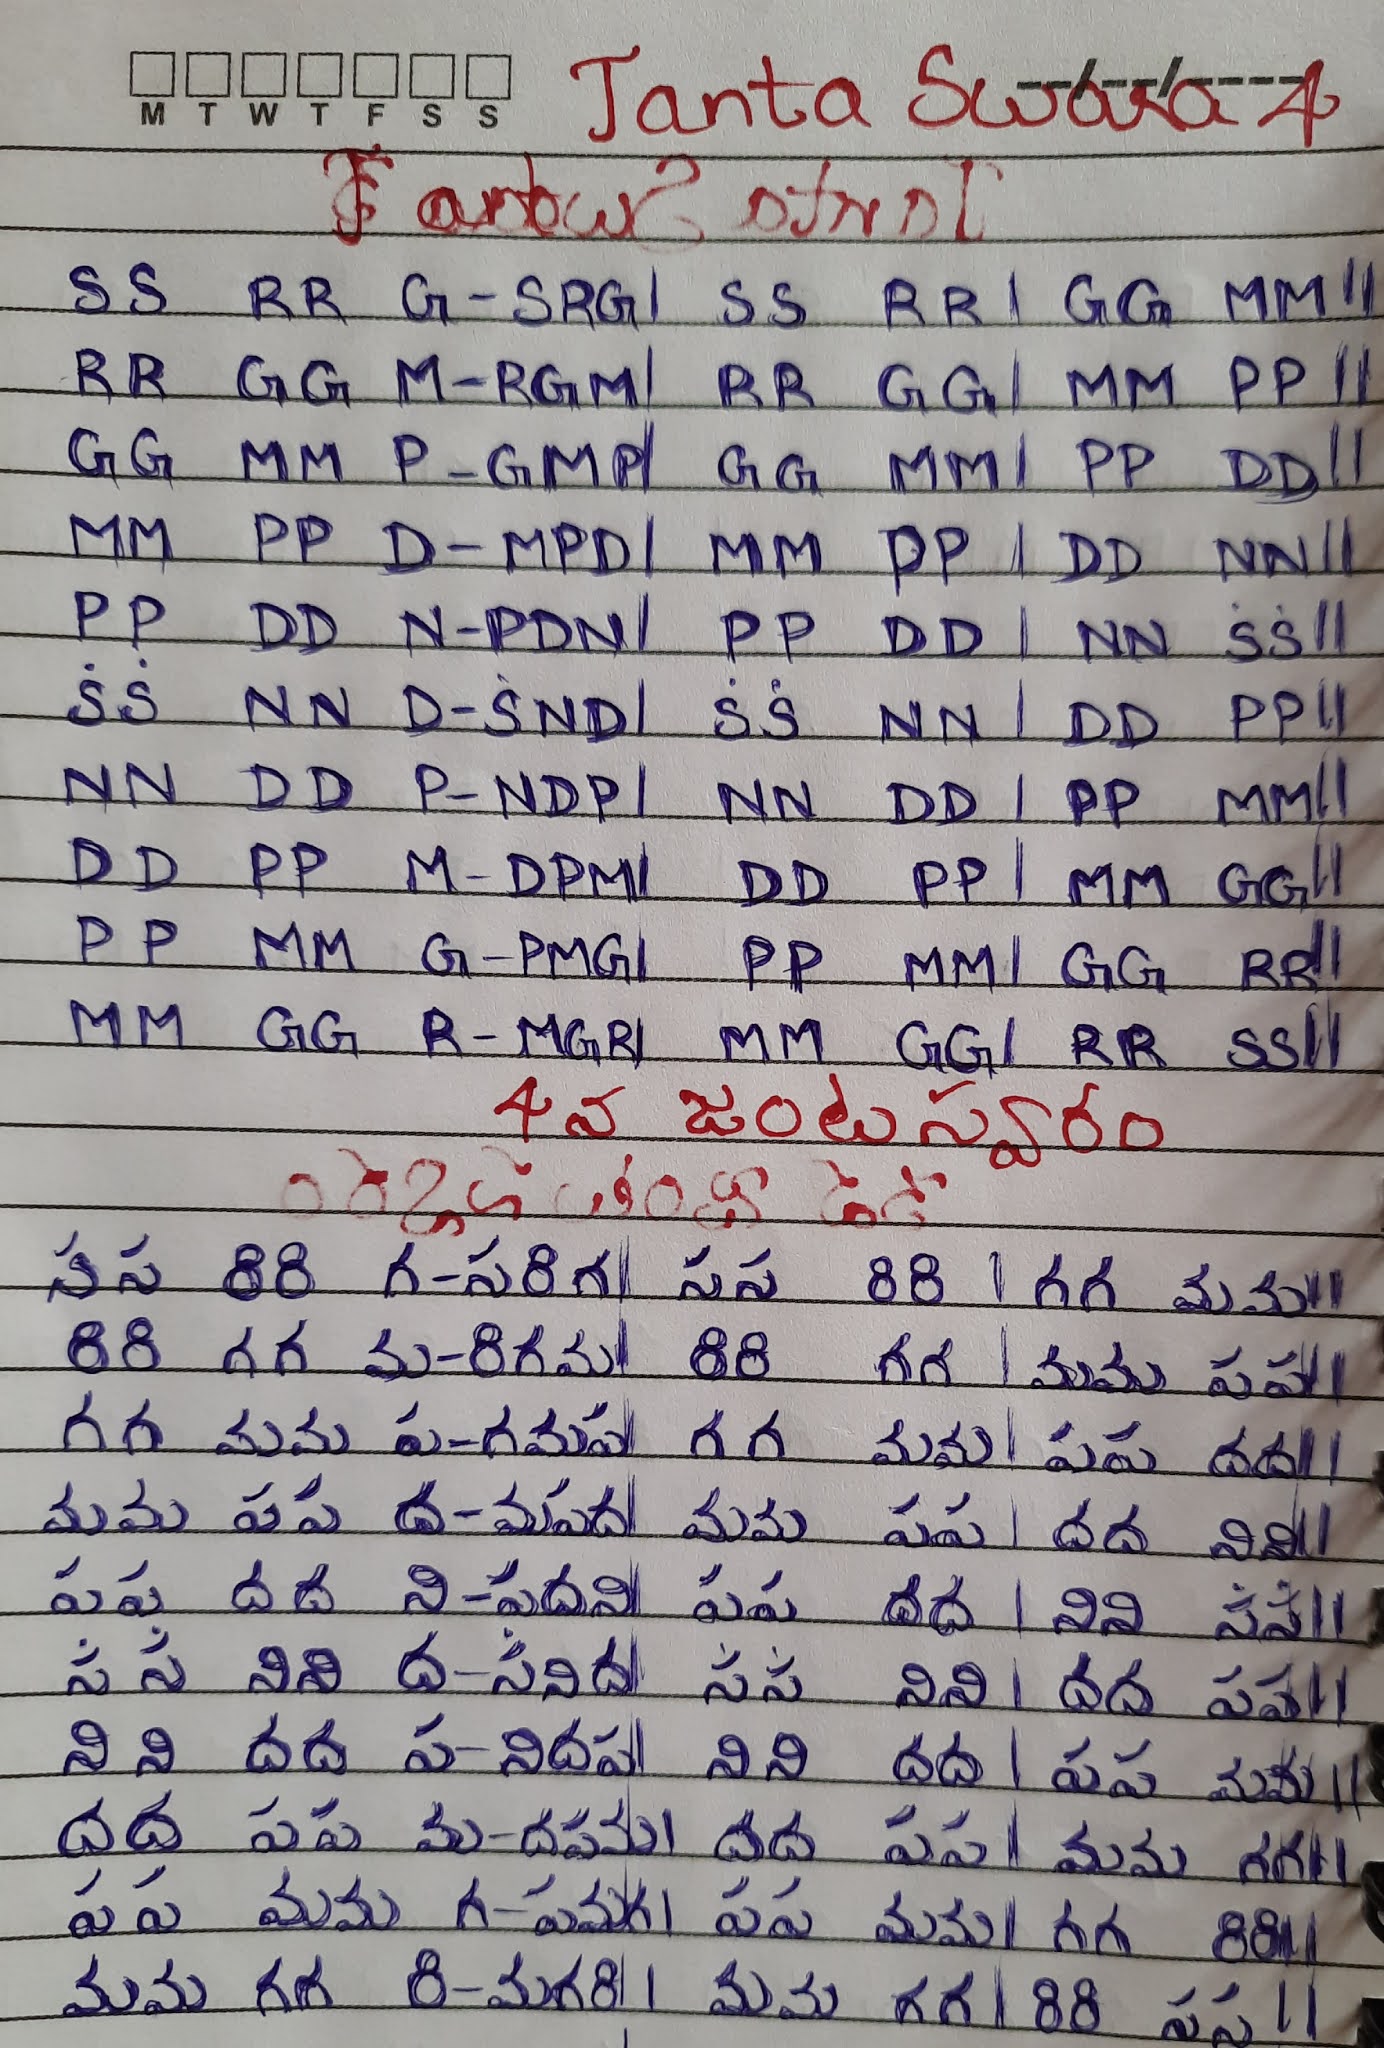 M T W T F S S
Janta Swara 4
SS RR G-SRG| SS RR| GG MM||
RR GG M-RGM| RR GG| MM PP||
GG MM P-GMP| GG MM| PP DD||
MM PP D-MPD| MM PP| DD NN||
PP DD N-PDN| PP DD| NN ṠṠ||
ṠṠ NN D-ṠND| ṠṠ NN| DD PP||
NN DD P-NDP| NN DD| PP MM||
DD PP M-DPM| DD PP| MM GG||
PP MM G-PMG| PP MM| GG RR||
MM GG R-MGR| MM GG| RR SS||
4వ జంటుస్వరం
సస రిరి గ-సరిగ| సస రిరి| గగ మమ||
రిరి గగ మ-రిగమ| రిరి గగ| మమ పప||
గగ మమ ప-గమప| గగ మమ| పప దద||
మమ పప ద-మపద| మమ పప| దద నిని||
పప దద ని-పదని| పప దద| నిని స̇స̇||
స̇స̇ నిని ద-స̇నిద| స̇స̇ నిని| దద పప||
నిని దద ప-నిదప| నిని దద| పప మమ||
దద పప మ-దపమ| దద పప| మమ గగ||
పప మమ గ-పమగ| పప మమ| గగ రిరి||
మమ గగ రి-మగరి|| మమ గగ| రిరి సస||